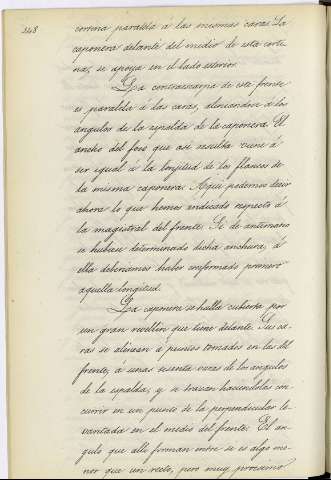 348
cortina paralela á las mismas caras. La
caponera delante del medio de esta corti
na, se apoya en el lado esterior.
La contraescarpa de este frente
es paralela á las caras, alineandose á los
angulos de la espalda de la caponera. El
ancho del foso que asi resulta viene á
ser igual á la lonjitud de los flancos de
la misma caponera. Aqui podemos decir
ahora lo que hemos indicado respecto á
la magistral del frente. Si de antemano
se hubiese determinado dicha anchura, á
ella deberiamos haber conformado primero
aquella longitud.
La caponera se halla cubierta por
un gran revellin que tiene delante. Sus ca
ras se alinean á puntos tomados en las del
frente, á unas treinta varas de los angulos
de la espalda; y se trazan haciendolas con
currir en un punto de la perpendicular le
vantada en el medio del frente. El an
gulo que alli forman entre si es algo me
nor que un recto, pero muy proximo